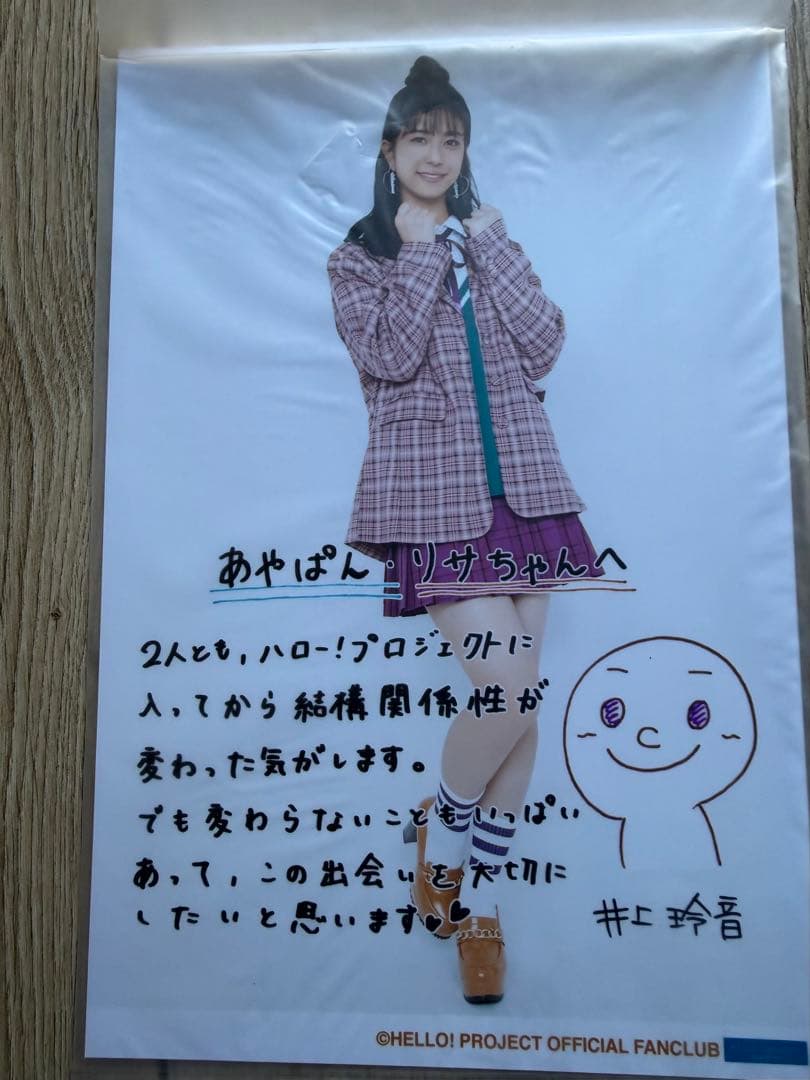 あやぱん・リサちゃんへ
2人とも、ハロー!プロジェクトに
入ってから結構関係性が
変わった気がします。
でも変わらないこともいっぱい
あって、この出会いを大切に
したいと思います♥♥
井上玲音
©HELLO! PROJECT OFFICIAL FANCLUB